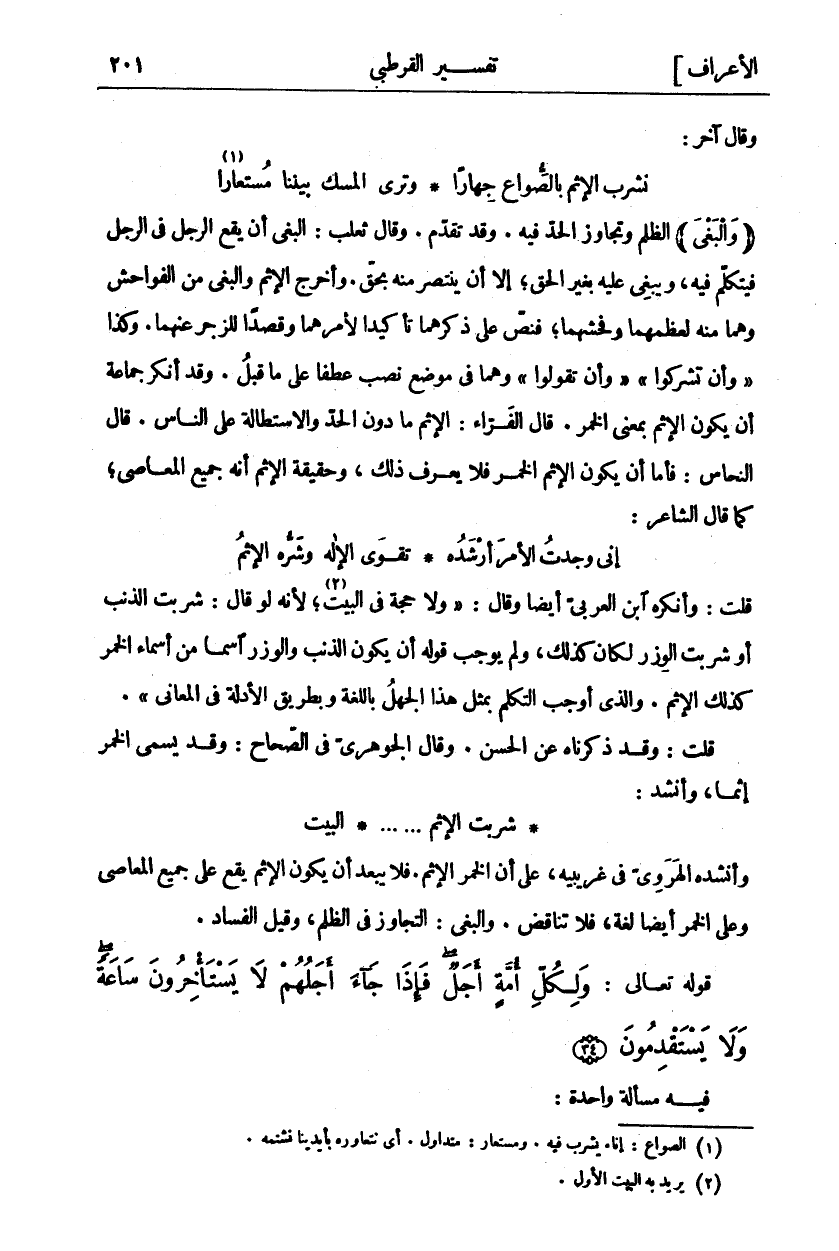 الأعراف ] تفســـير القرطبي ٢٠١
وقال آخر :
نشرب الإثم بالصُّواع جِهارًا * وترى المسك بيننا مُستعارا (١)
﴿ وَالْبَغْيَ ﴾ الظلم وتجاوز الحدّ فيه . وقد تقدّم . وقال ثعلب : البغى أن يقع الرجل فى الرجل
فيتكلّم فيه، ويبغِى عليه بغير الحق؛ إلا أن ينتصر منه بحقّ . وأخرج الإثم والبغى من الفواحش
وهما منه لعظمهما وفحشهما؛ فنصّ على ذكرهما تأكيدا لأمرهما وقصدًا للزجر عنهما. وكذا
« وأن تشركوا » « وأن تقولوا » وهما فى موضع نصب عطفا على ما قبلُ . وقد أنكر جماعة
أن يكون الإثم بمعنى الخمر . قال الفَرّاء : الإثم ما دون الحدّ والاستطالة على النـاس . قال
النحاس : فأما أن يكون الإثم الخمـر فلا يعـرف ذلك ، وحقيقة الإثم أنه جميع المعـاصى؛
كما قال الشاعر :
إنى وجدتُ الأمرَ أرْشَدُه * تقـوَى الإلٰه وشَرُّه الإثمُ
قلت : وأنكره آبن العربىّ أيضا وقال : « ولا حجة فى البيت (٢)؛ لأنه لو قال : شربت الذنب
أو شربت الوِزر لكان كذلك، ولم يوجب قوله أن يكون الذنب والوزر آسمـا من أسماء الخمر
كذلك الإثم . والذى أوجب التكلم بمثل هذا الجهلُ باللغة وبطريق الأدلة فى المعانى » .
قلت : وقـد ذكرناه عن الحسن . وقال الجوهرىّ فى الصّحاح : وقـد يسمى الخمر
إثمـا، وأنشد :
* شربت الإثم ... ... * البيت
وأنشده الهَرَوِىّ فى غريبيه، على أن الخمر الإثم. فلا يبعد أن يكون الإثم يقع على جميع المعاصى
وعلى الخمر أيضا لغة، فلا تناقض . والبغى : التجاوز فى الظلم، وقيل الفساد .
قوله تعـالى : وَلِـكُلِّ أُمَّةٍ أَجَلٌۖ فَإِذَا جَآءَ أَجَلُهُمْ لَا يَسْتَأْخِرُونَ سَاعَةًۖ
وَلَا يَسْتَقْدِمُونَ ﴿٣٤﴾
فيـــه مسألة واحدة :
(١) الصواع : إناء يشرب فيه . ومستعار : متداول . أى نتعاوره بأيدينا نشتمه .
(٢) يريد به البيت الأول .